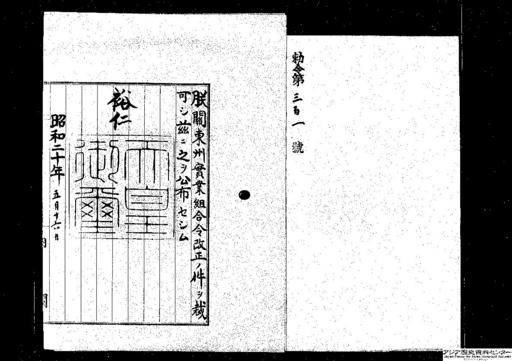 勅令第三百一號
朕關東州實業組合令改正ノ件ヲ裁
可シ茲ニ之ヲ公布セシム
裕仁
天皇
御璽
昭和二十年五月十六日
内閣
アジア歴史資料センター